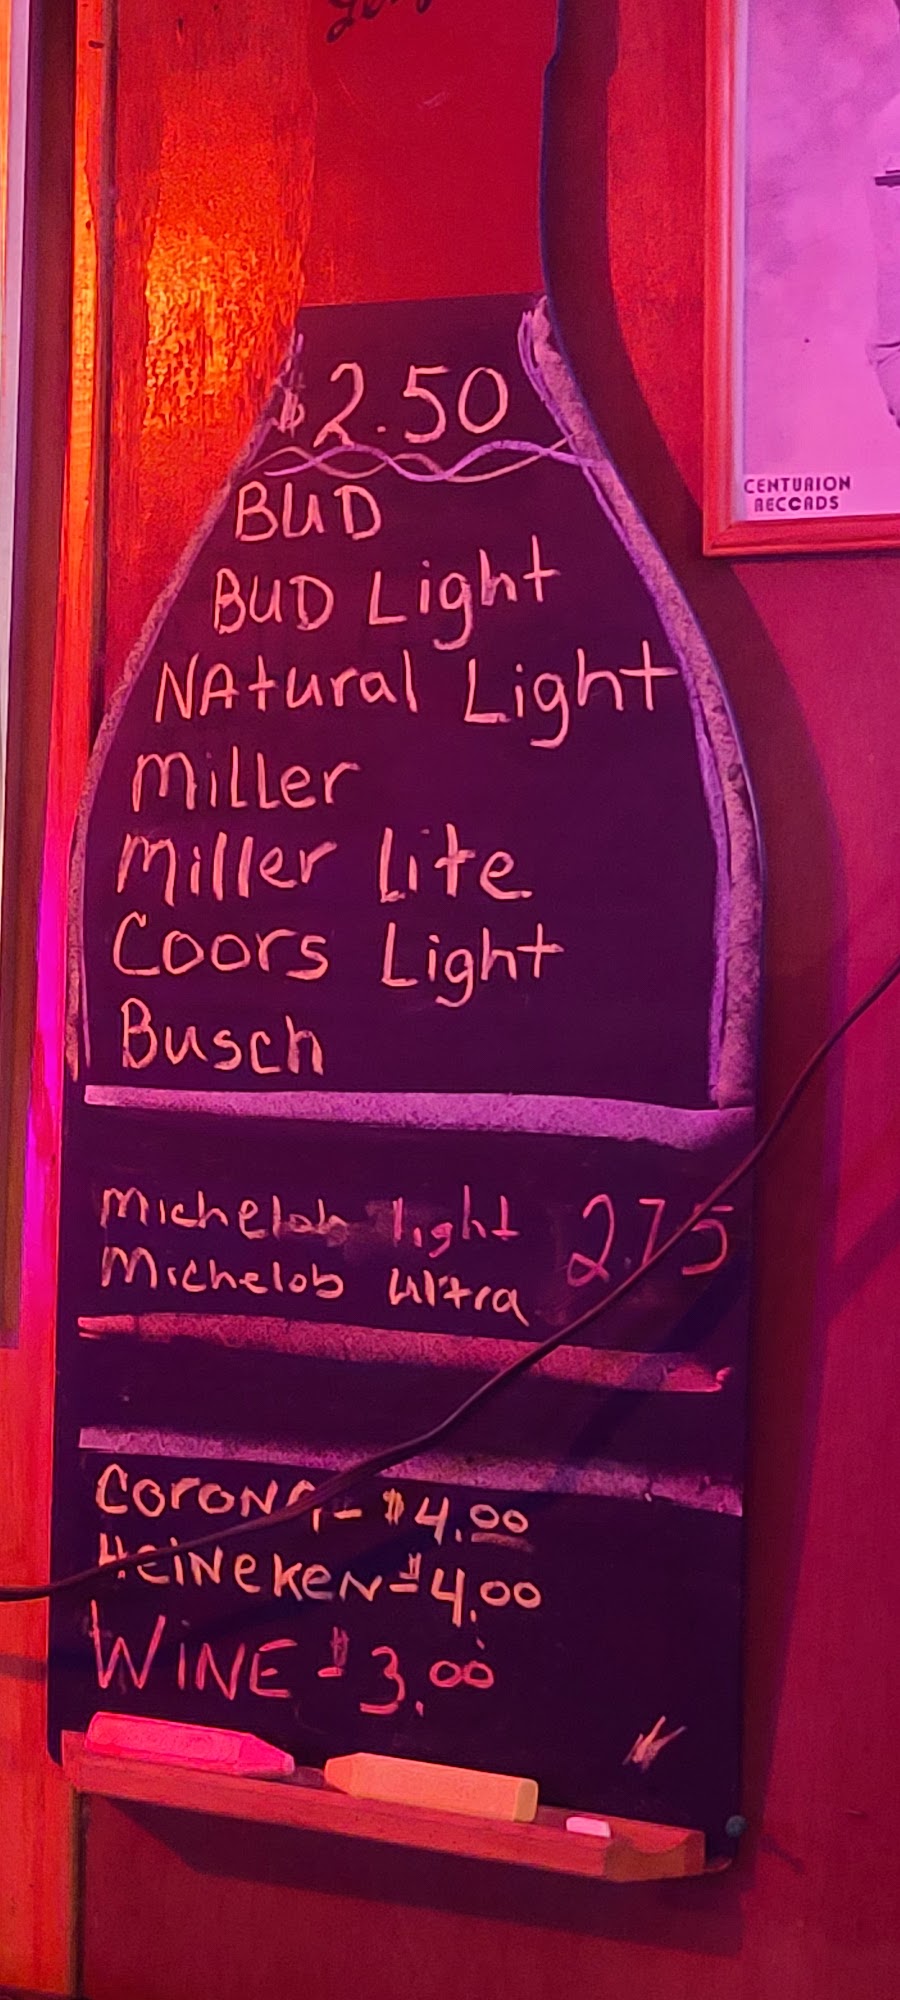 $2.50
BUD
BUD Light
NAtural Light
Miller
Miller Lite
Coors Light
Busch
Michelob light
Michelob ultra
2.75
Corona - $4.00
HeiNeKeN - $4.00
WiNE - $3.00
CENTURION
RECORDS